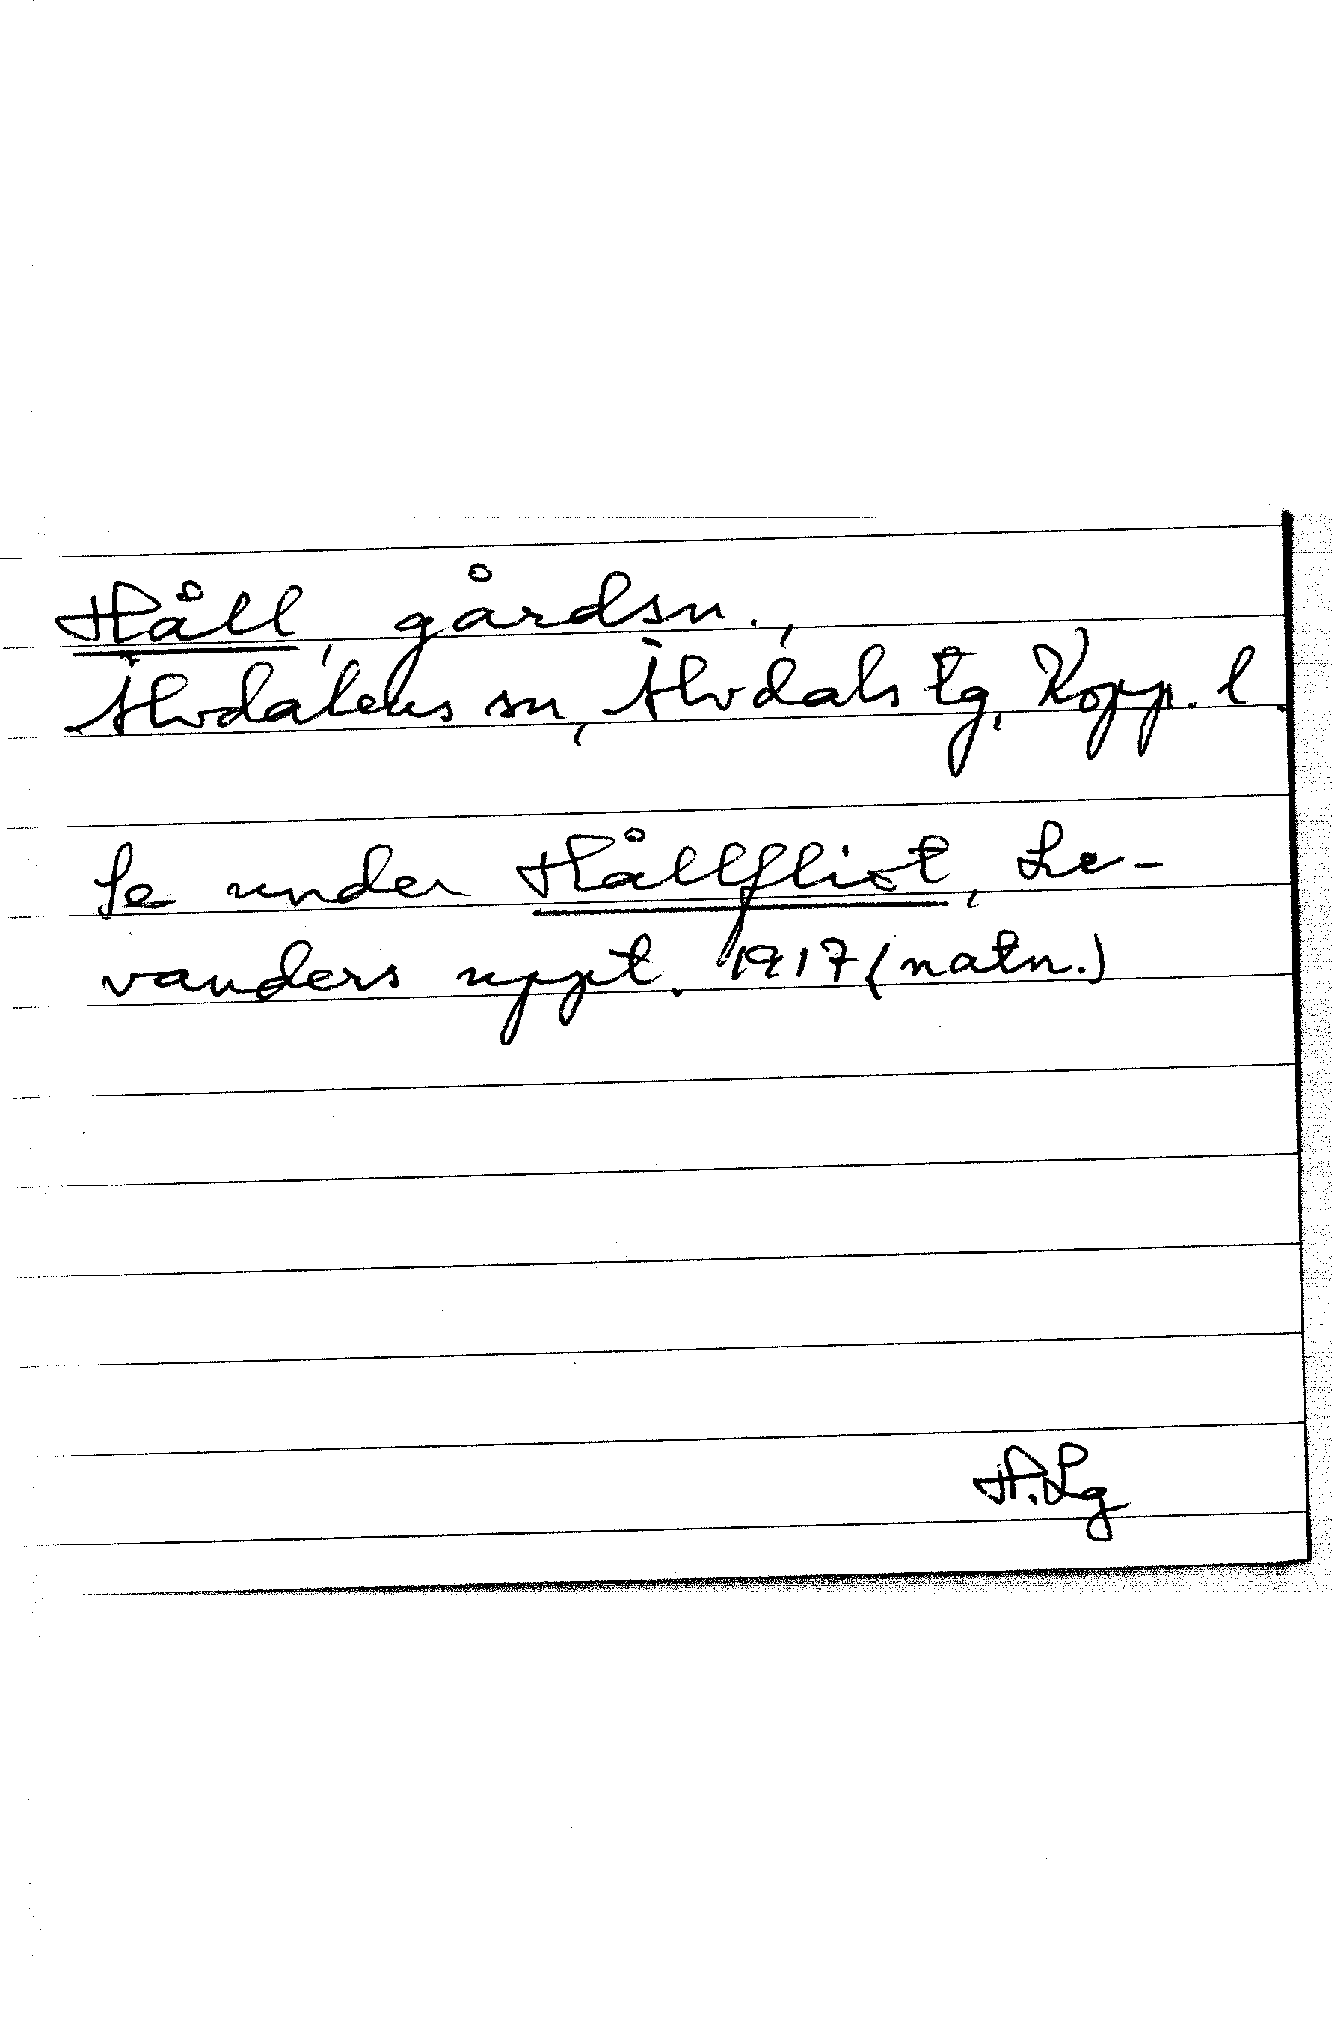 Håll, gårdsn.,
Älvdalens sn, Älvdals tg, Kopp. l.
Se under Hållflist, Le-
vanders uppt. 1917 (natn.)
H. Lg